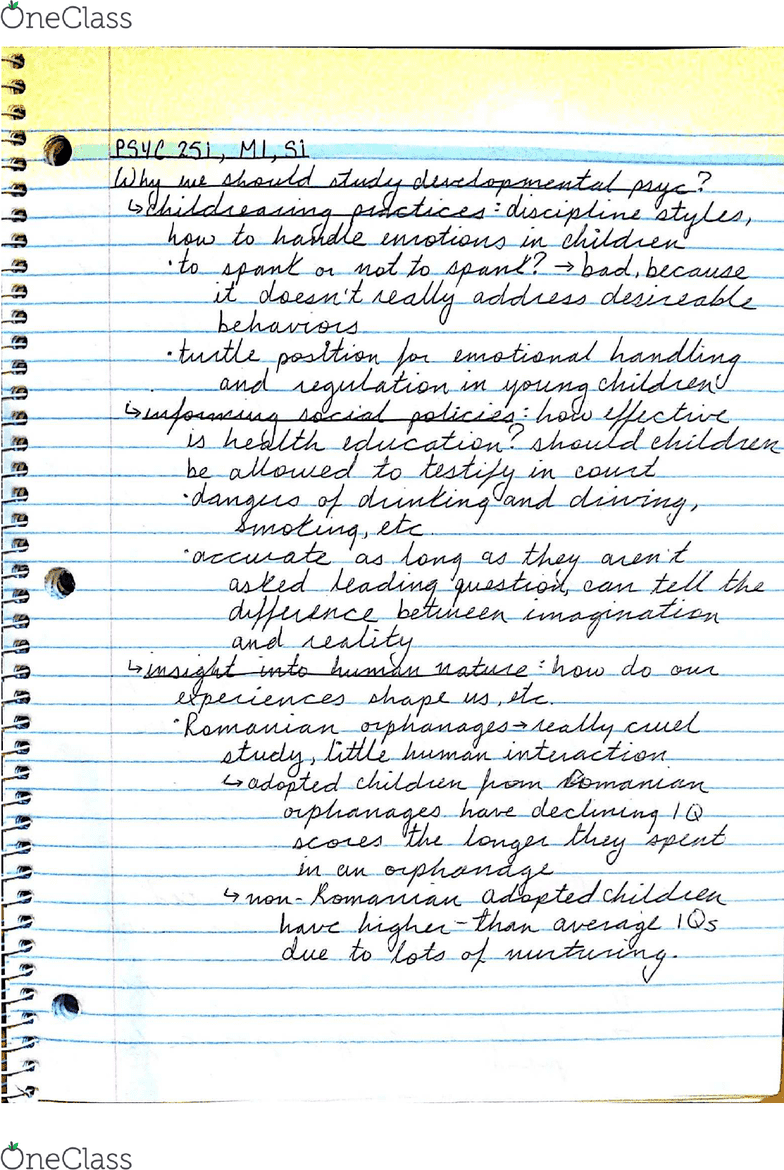 OneClass
PSYC 251, M1, S1
Why we should study developmental psyc?
↳childrearing practices: discipline styles,
how to handle emotions in children
·to spank or not to spank? → bad, because
it doesn't really address desireable
behaviors
·turtle position for emotional handling
and regulation in young children
↳informing social policies: how effective
is health education? should children
be allowed to testify in court
·dangers of drinking and driving,
smoking, etc.
·accurate as long as they aren't
asked leading question, can tell the
difference between imagination
and reality
↳insight into human nature: how do our
experiences shape us, etc.
·Romanian orphanages→really cruel
study, little human interaction
↳adopted children from Romanian
orphanages have declining IQ
scores the longer they spent
in an orphanage
↳non-Romanian adopted children
have higher-than average IQs
due to lots of nurturing.
OneClass